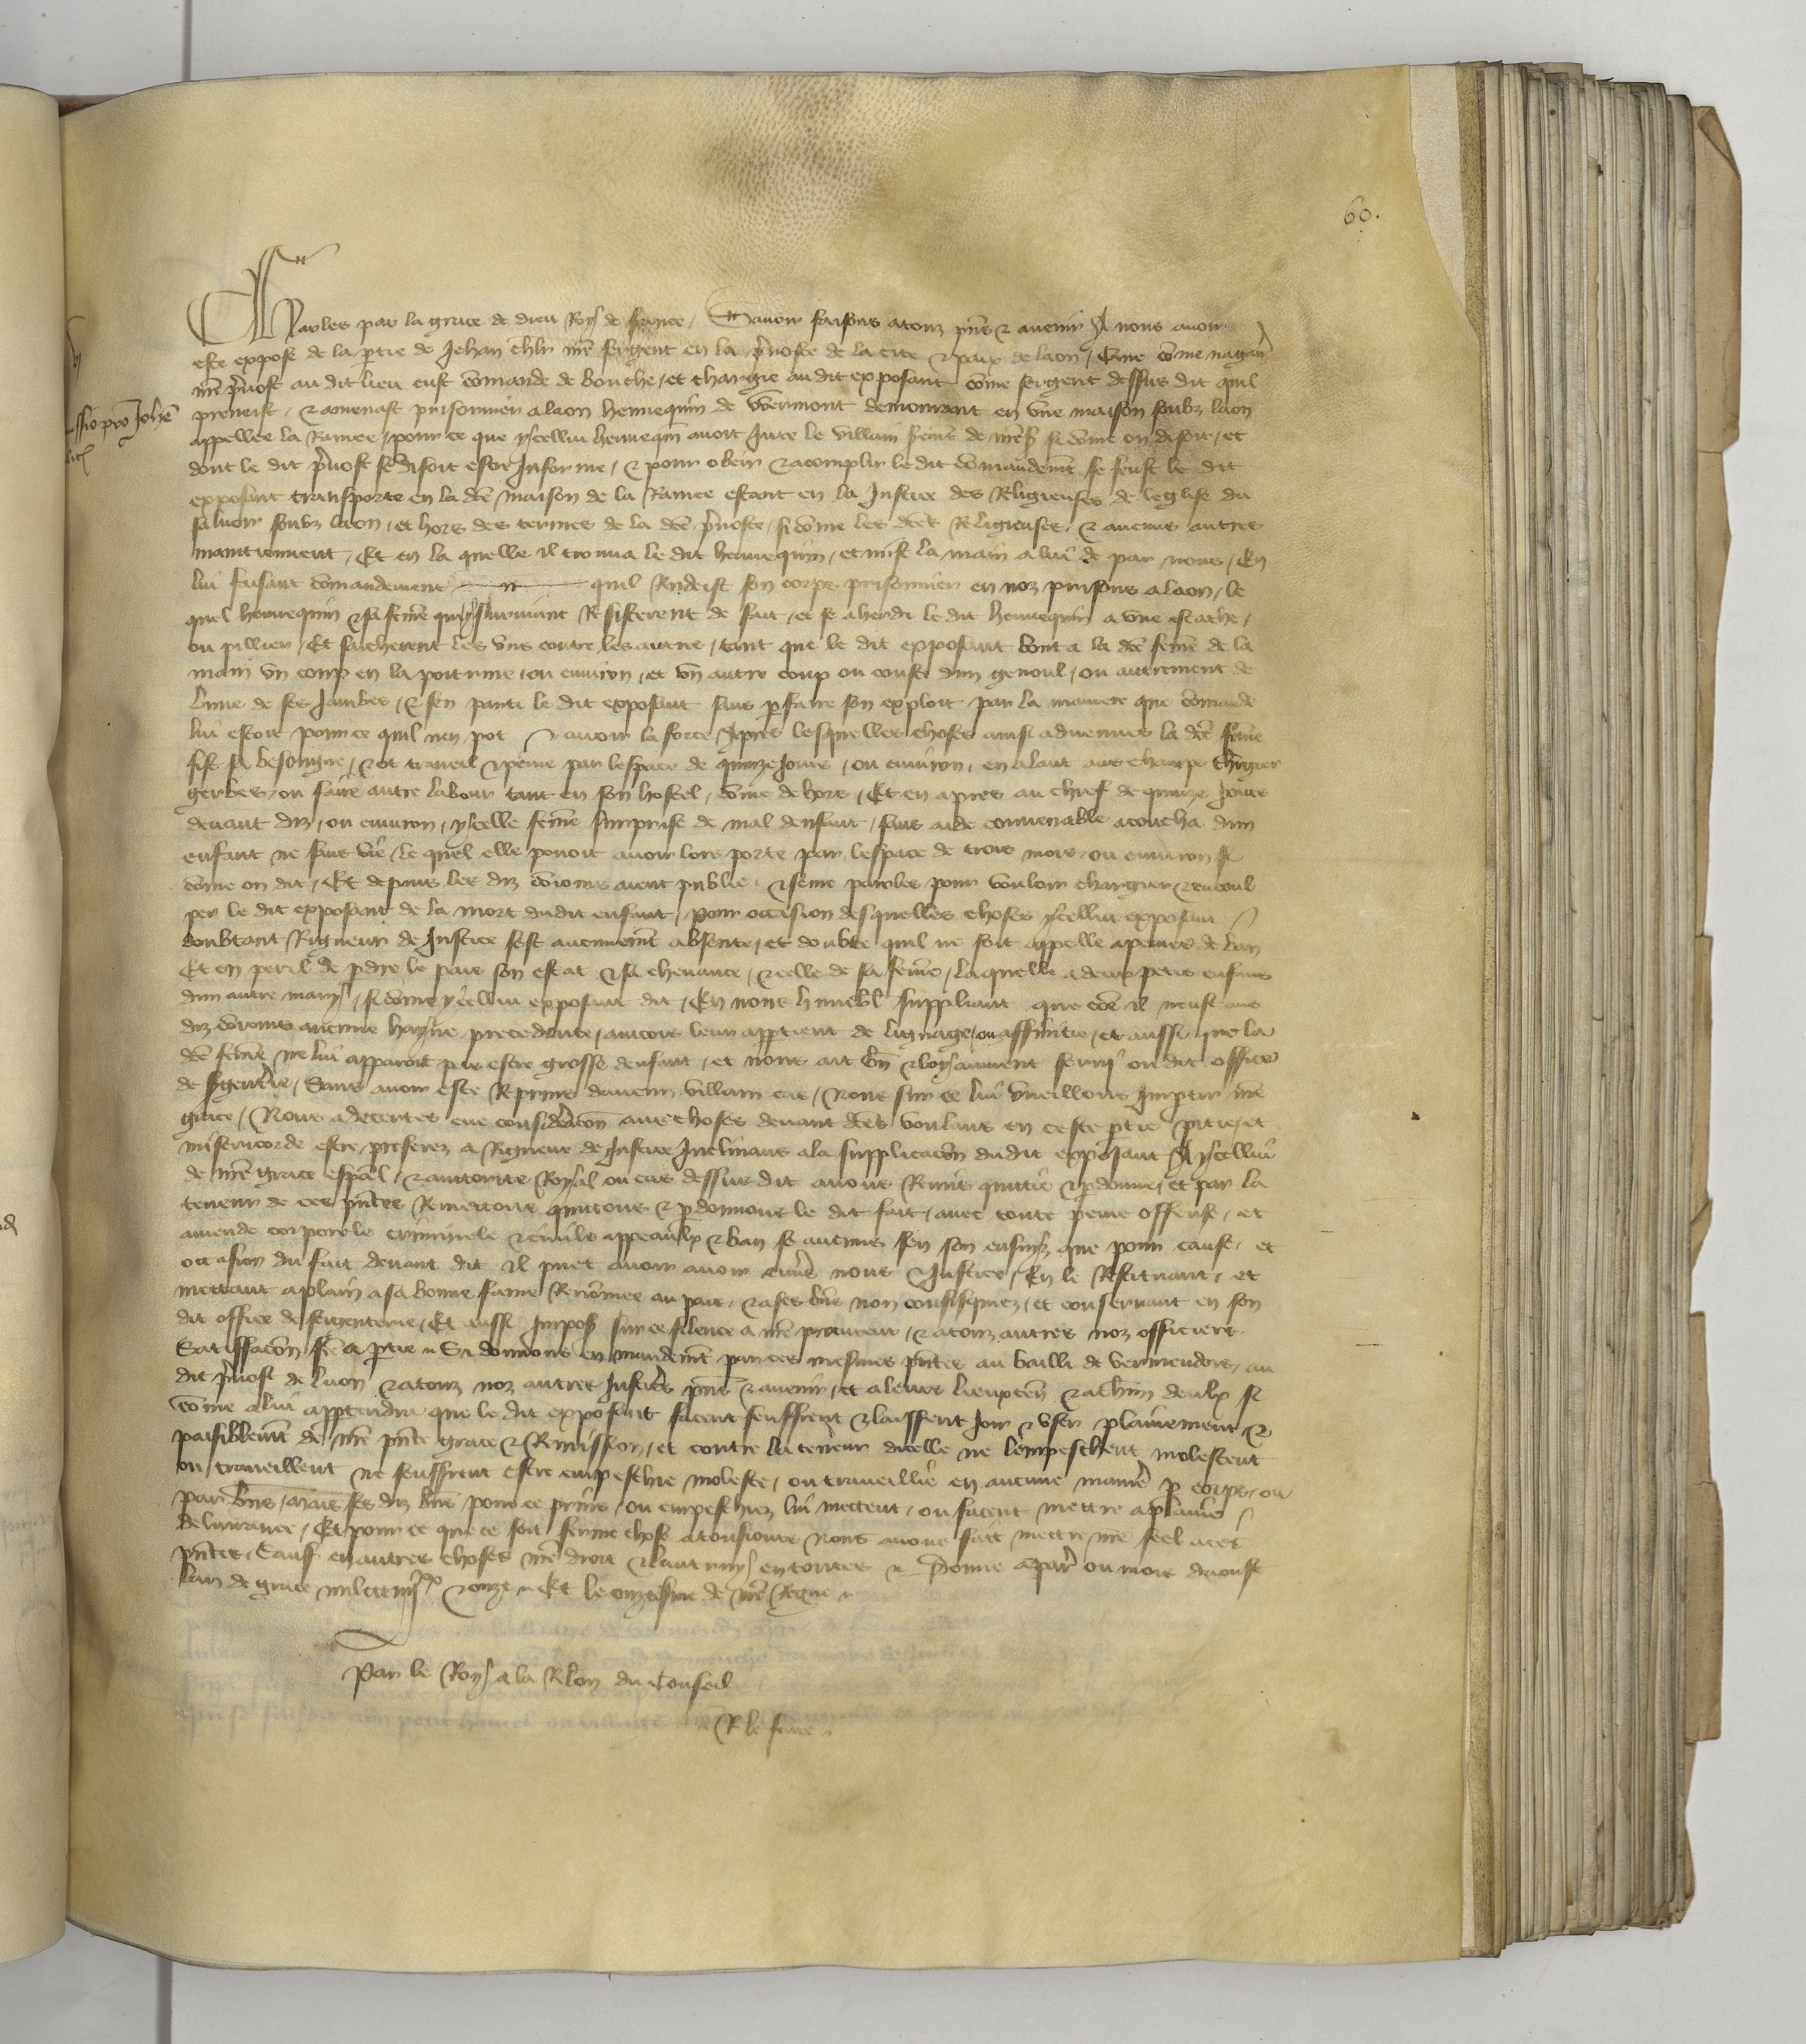 60.
Charles par la grace de dieu Roy de france. Sauoir faisons a touz pñs & auenir A nous auoir
este expose de la ptie de Jehan chlr nrẽ sergent en la puoste de la cite & paix de laon / Que cõme nagair
nrẽ preuost au dit lieu eust cõmande de bouche / et chargie au dit exposant cõme sergent dessus dit quil
preneist / & amenast prisonnier a laon hennequin de Wermont demourant en vne maison soubz laon
appellee la Ramee / pour ce que ycellui hennequin auoit Jure le villain serent de nrẽs si cõme on disoit / et
dont le dit puost se disoit estre Informe / & pour obeir & acomplir le dit cõmandemt se feust le dit
exposant transporte en la dcẽ maison de la Ramee estant en la Justice des Religieuses de leglise du
sauuoir soubz laon / et hors des termes de la dcẽ puoste / si cõme les dcẽs Religieuses / & aucuns autres
maintiennent / Et en la quelle il trouua le dit hennequin / et mist la main a lui de par nous / En
lui faisant cõmandement quil Rendeist son corps prisonnier en noz prisons a laon / le
quel hennequin & sa femẽ qui y suruint Resisterent de fait / et se aherdi le dit hennequin a vne estache /
ou pillier / Et sacherent les vns contre les autres / tant que le dit exposant bouta la dcẽ femẽ de la
main vn coup en la poitrine / ou enuiron / et vn autre coup ou couste dun genoul / ou autrement de
lune de ses Jambes / & sen parti le dit exposant sans pfaire son exploit par la maniere que cõmande
lui estoit pour ce quil nen pot auoir la force Apres lesquelles choses ainsi aduenues la dcẽ femẽ
fist sa besoingne / & ot trauail & peine par lespace de quinze Jours / ou enuiron / en alant aus champs chrgier
gerbes / ou faire autre labour tant en son hostel / cõme dehors / Et en apres au chief de quinze Jours
deuant diz / ou enuiron / ycelle femẽ surprise de mal denfant / sans aide conuenable acoucha dun
enfant ne sans vie le quel elle pouoit auoir lors porte par lespace de trois mois / ou enuiron si
cõme on dit / Et depuis les diz coniois aient publie & seme paroles pour vouloir chargier & encoul
per le dit exposant de la mort dudit enfant / pour occasion desquelles choses ycellui exposant
doubtant Rigueur de Justice sest aucunemt absente / et doubte quil ne soit appelle a peines de ban
Et en peril de pdre le pais son estat & sa cheuance / & celle de sa femẽ / laquelle a deux petis enfans
dun autre mary / si cõme ycellui exposant dit / En nous humblt suppliant que cõe il neust aus
diz coniois aucune hayne precedente / aincois leur apptient de lignage / ou affinite / et aussi que la
dcẽ femẽ ne lui apparoit pas estre grosse denfant / et nous ait bñ & loyaument serui ou dit office
de sgentie / Sans auoir este Reprins daucun villain cas / Nous sur ce lui vueillons Impartir nrẽ
grace / Nous adecertes eue consideracion aus choses deuant dcẽs voulans en ceste ptie pitie et
misericorde estre preferez a Rigueur de Justice Inclinans a la supplicacion dudit exposant A ycellui
de nrẽ grace espcal / & auctorite Royal ou cas dessus dit auons Remis quittie & pdonne / et par la
teneur de ces pñtes Remettons quittons & pdonnons le dit fait / auec toute peine offense / et
amende corporele criminele & ciuile appeaulx & ban se aucuns sen son ensuiz que pour cause / et
occasion du fait deuant dit il puet auoir auoir enuers nous & Justice / En le Restituant / et
mettant a plain a sa bonne fame Renõmee au pais / & a ses biens non confisquez / et conseruant en son
dit office de sergenterie / Et aussi Imposs sur ce silence a nrẽ procureur / & a touz autres noz officiers
Satisfacõn fcẽ a ptie Si donnons en mandemt par ces mesmes pñtes au bailli de vermendois / au
dit puost de laon & a touz noz autres Justiciers pñs & auenir / et a leurs lieuxten & a chun deulx si
cõme a lui apptendra que le dit exposant facent seuffrent & laissent Joir & vser plainement &
paisiblemt de nrẽ pñte grace & Remission / et contre la teneur dicelle ne lempeschent molestent
ou trauaillent ne seuffrent estre empeschie moleste / ou traueillie en aucune maniẽ p corps / ou
par biens / mais ses diz biens pour ce prins / ou empeschiez lui mettent / ou facent mettre a plaine
deliurance / Et pour ce que ce soit ferme chose a tousiours nous auons fait mettre nrẽ seel a ces
pñtes / Sauf en autres choses nrẽ droit & lautruy en toutes Donne a paris ou mois daoust
lan de grace mil ccc iiijxx & onze Et le onziesme de nrẽ Regne
Par le Roy a la Relon du Conseil
R le feure